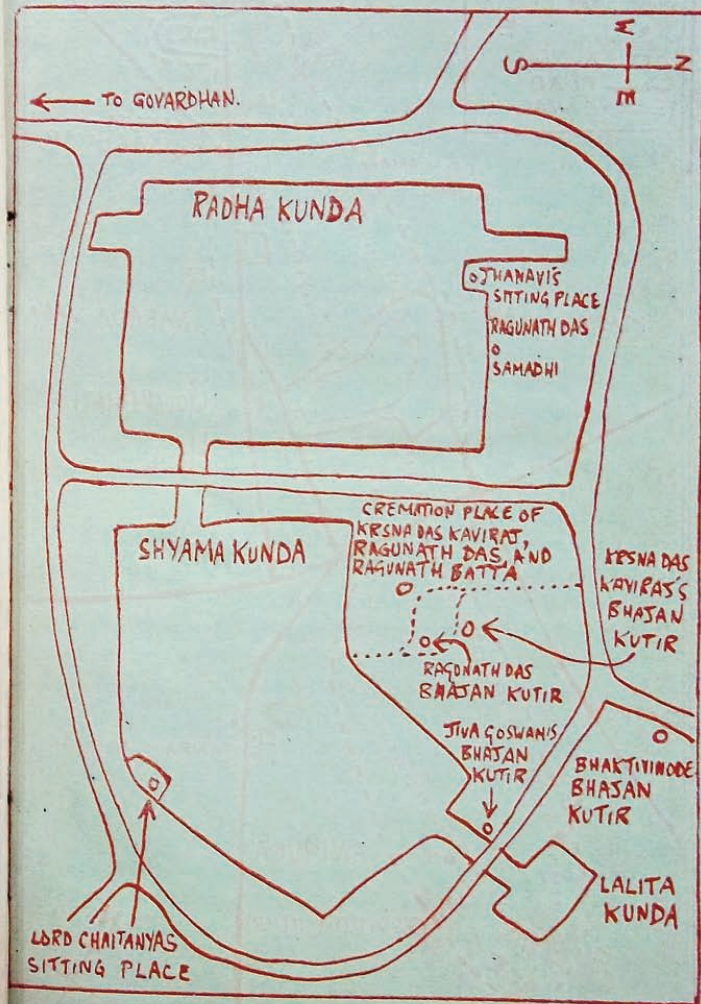 W
S N
E
← TO GOVARDHAN.
RADHA KUNDA
JHANAVI'S
SITTING PLACE
RAGUNATH DAS
SAMADHI
CREMATION PLACE OF
KRSNA DAS KAVIRAJ,
RAGUNATH DAS, AND
RAGUNATH BATTA
SHYAMA KUNDA
KRSNA DAS
KAVIRAJ'S
BHAJAN
KUTIR
RAGONATH DAS
BHAJAN KUTIR
JIVA GOSWAMIS
BHAJAN
KUTIR
BHAKTIVINODE
BHAJAN
KUTIR
LALITA
KUNDA
LORD CHAITANYAS
SITTING PLACE